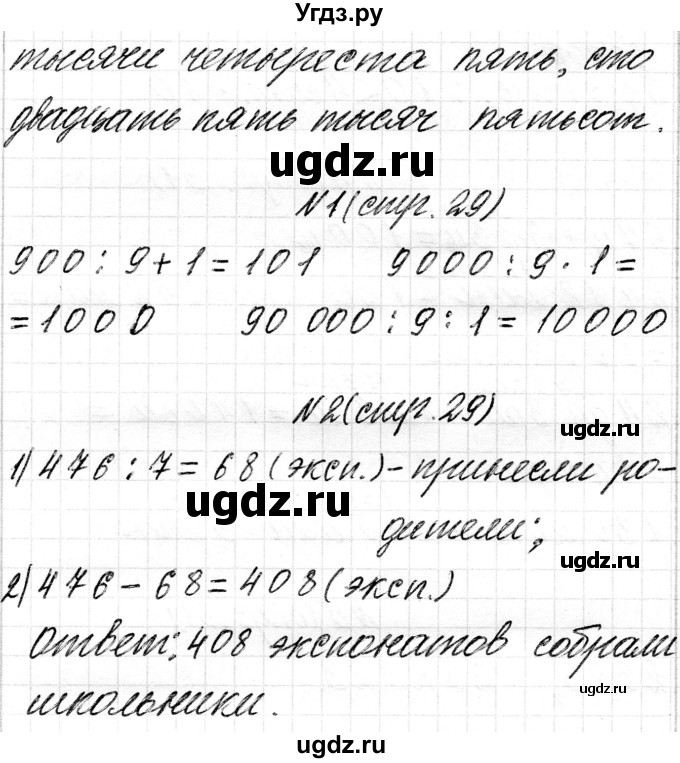 Угдз.ру
тысячи четыреста пять, сто
двадцать пять тысяч пятьсот.
ugdz.ru
N1(стр. 29)
900 : 9 + 1 = 101 9000 : 9 · 1 =
= 1000 90 000 : 9 : 1 = 10000
ugdz.ru
N2(стр. 29)
ugdz.ru
1) 476 : 7 = 68 (эксп.) - принесли ро-
ugdz.ru
дители;
ugdz.ru
2) 476 - 68 = 408 (эксп.)
Ответ: 408 экспонатов собрали
ugdz.ru
школьники.
ugdz.ru